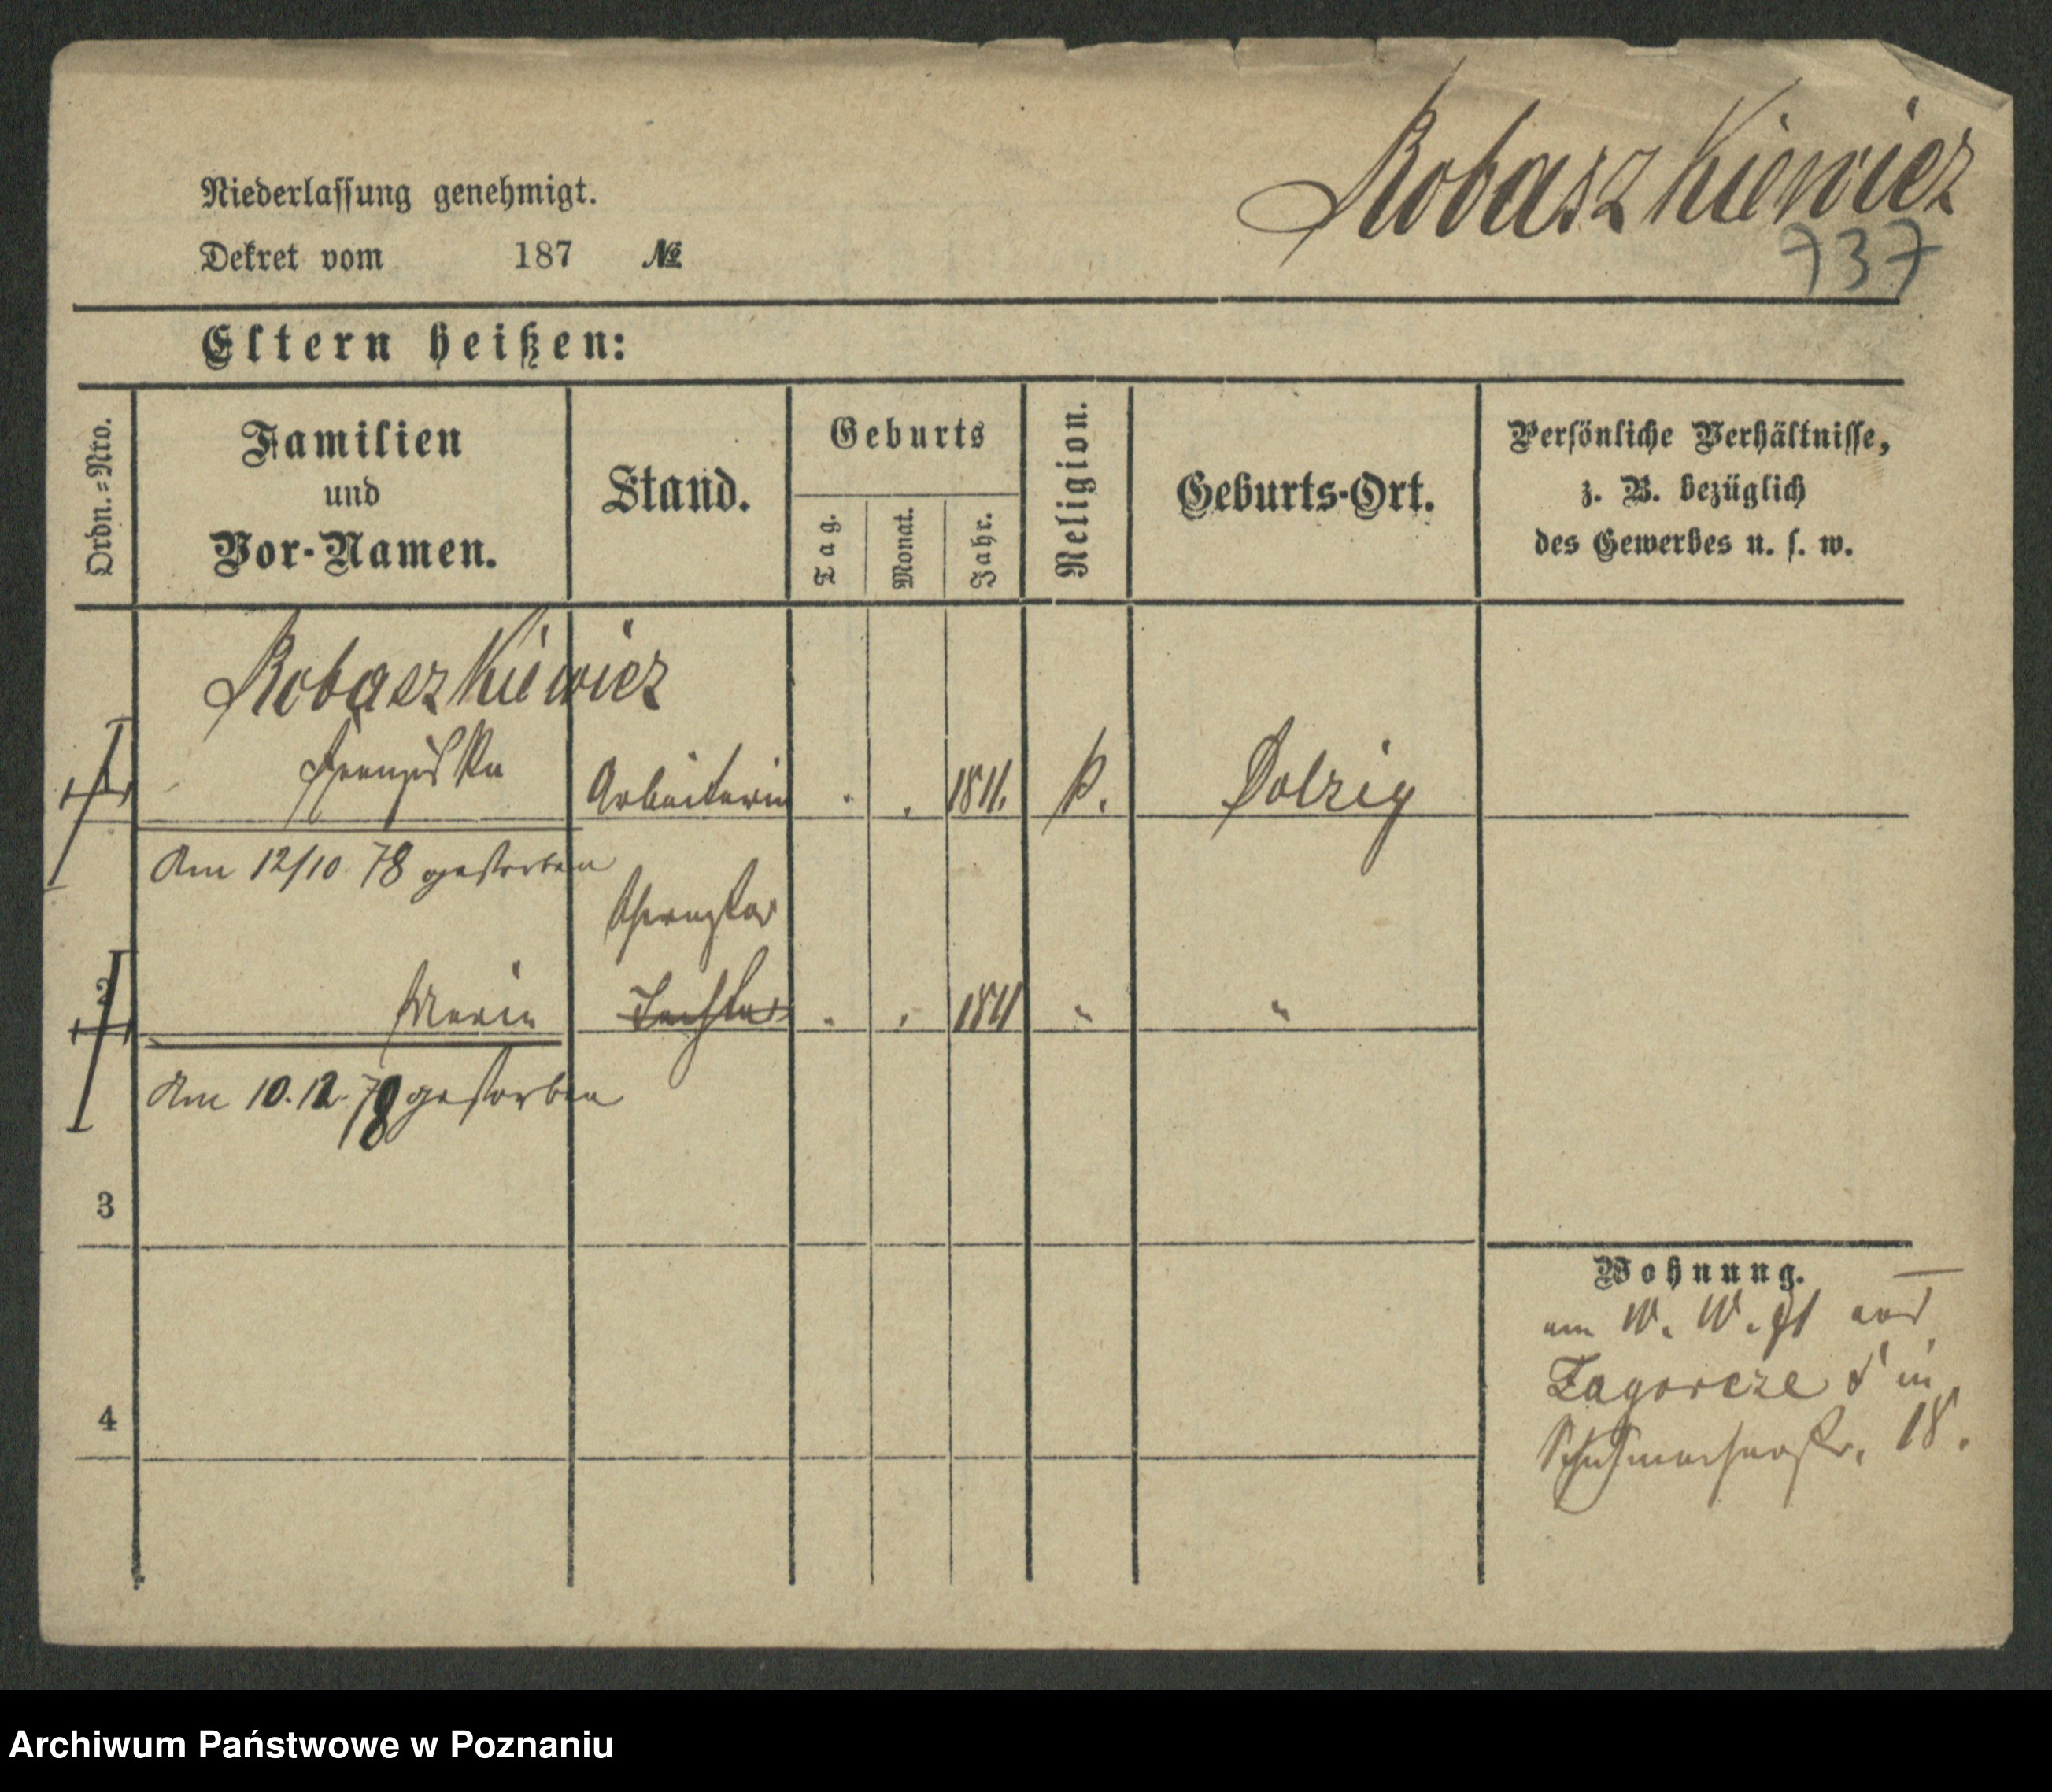 Robaszkiewicz
737
Niederlassung genehmigt.
Dekret vom 187 №
Eltern heißen:
Ordn.=Nro.
Familien
und
Vor-Namen.
Stand.
Geburts
Tag.
Monat.
Jahr.
Religion.
Geburts-Ort.
Persönliche Verhältnisse,
z. B. bezüglich
des Gewerbes u. s. w.
Robaszkiewicz
1 Franziska Arbeiterin . . 1811. k. Dolzig
Am 12/10 78 gestorben
Schwester
2 Marie Tochter . . 1811 " "
Am 10.12.78 gestorben
3
Wohnung.
am
Zagorcze in
4
Schuhmacherstr. 18.
Archiwum Państwowe w Poznaniu